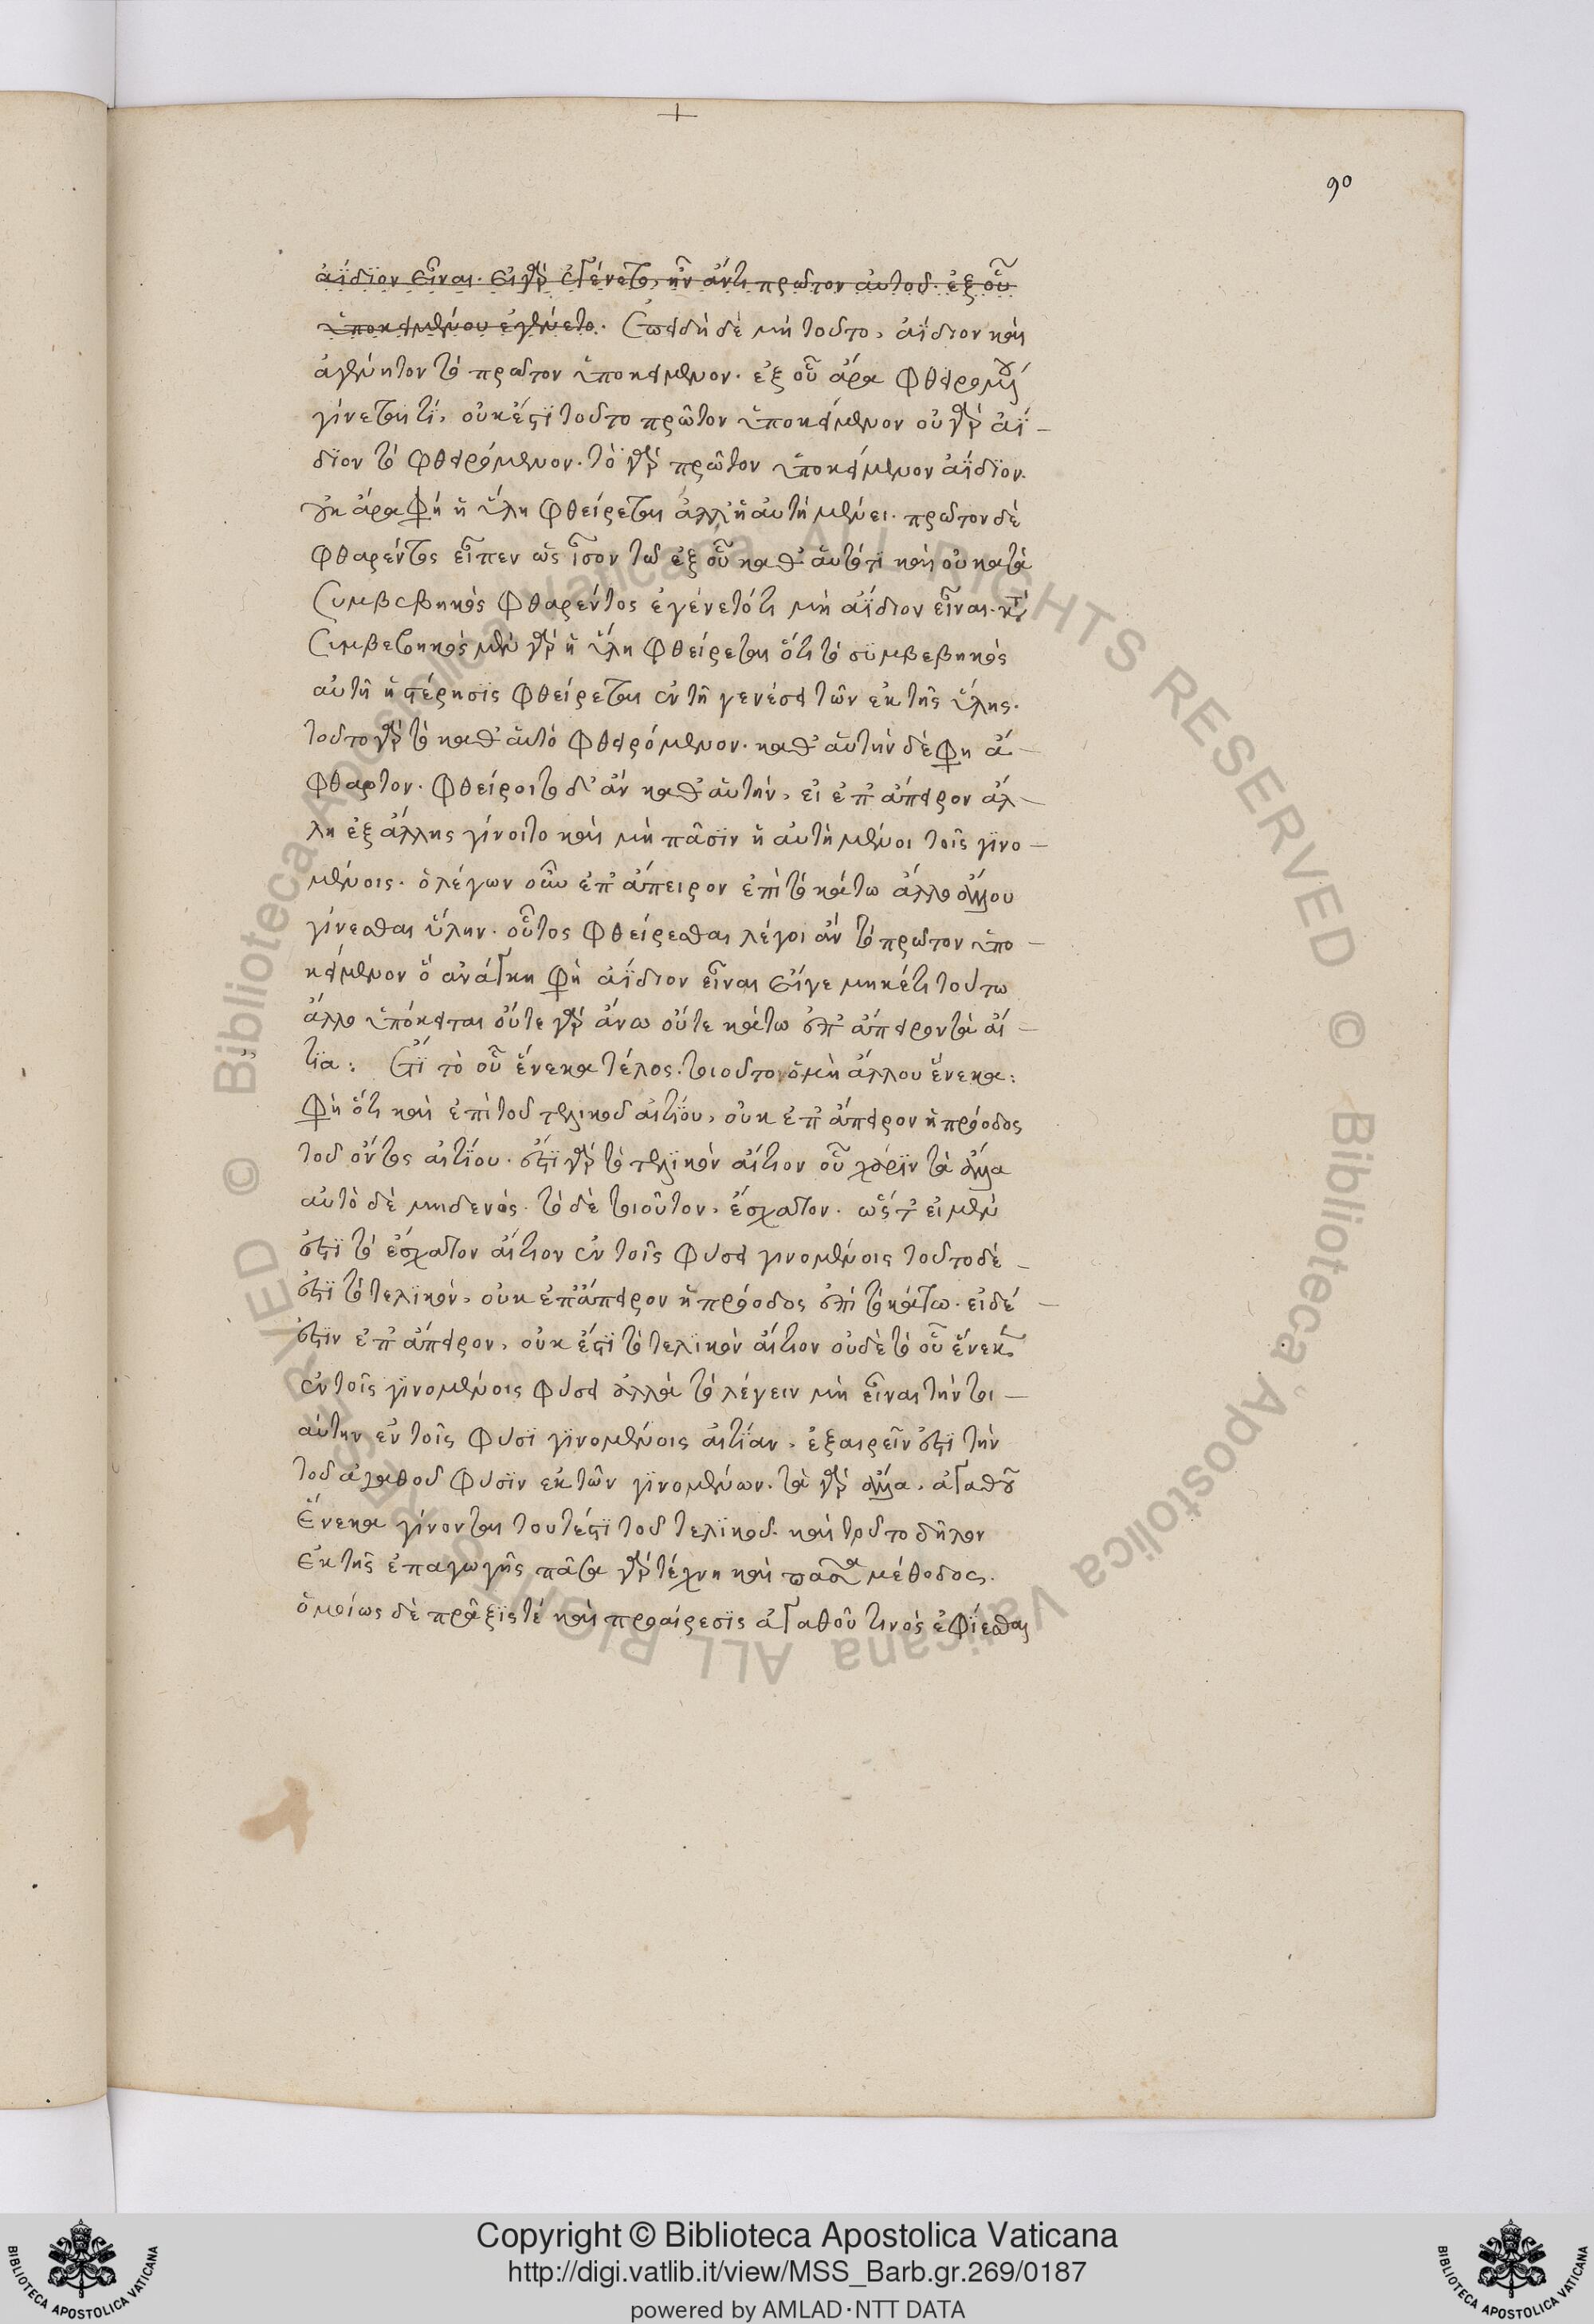 90
ἀΐδϊον εἶναι. εἰ γὰρ ἐγένετο, ἦν ἄντι πρῶτον αὐτοῦ. ἐξ οὗ
ὑποκειμένου ἐγένετο. ἐπειδὴ δὲ μὴ τοῦτο, ἀΐδιον καὶ
ἀγένητον τὸ πρῶτον ὑποκείμενον. ἐξ οὗ ἄρα φθειρομένου
γίνεταί τι, οὐκ ἔστϊ τοῦτο πρῶτον ὑποκείμενον οὐ γὰρ ἀΐ-
δϊον τὸ φθειρόμενον. τὸ γὰρ πρῶτον ὑποκείμενον ἀΐδϊον.
οὐκ ἄρα φὴ ἡ ὕλη φθείρεται ἀλλ' ἡ αὐτὴ μένει. πρῶτον δὲ
φθαρέντος εἶπεν ὡς ἶσον τῶ ἐξ οὗ καθ' αὑτό τϊ καὶ οὐ κατὰ
συμβεβηκὸς φθαρέντος ἐγένετό τι μὴ ἀΐδιον εἶναι. κατὰ
συμβεβηκὸς μὲν γὰρ ἡ ὕλη φθείρεται ὅτι τὸ συμβεβηκὸς
αὐτῆ ἡ στέρησϊς φθείρεται ἐν τῆ γενέσει τῶν ἐκ τῆς ὕλης.
τοῦτο γὰρ τὸ καθ' αὑτὸ φθειρόμενον. καθ' αὑτὴν δὲ φη ἄ-
φθαρτον. φθείροιτο δ' ἂν καθ' αὑτὴν, εἰ ἐπ' ἄπειρον ἄλ-
λη ἐξ ἄλλης γίνοιτο καὶ μὴ πᾶσϊν ἡ αὐτὴ μένοι τοῖς γϊνο-
μένοις. ὁ λέγων οὖν ἐπ' ἄπειρον ἐπὶ τὸ κάτω ἄλλο ἄλλου
γίνεσθαι ὕλην. οὗτος φθείρεσθαι λέγοι ἂν τὸ πρῶτον ὑπο-
κείμενον ὃ ἀνάγκη φὴ ἀΐδιον εἶναι εἴγε μηκέτι τούτω
ἄλλο ὑπόκειται οὔτε γὰρ ἄνω οὔτε κάτω ἐπ' ἄπειρον τὰ αἴ-
τϊα: Ἔτϊ τὸ οὗ ἕνεκα τέλος. τοιοῦτο ὃ μὴ ἄλλου ἕνεκα:
φὴ ὅτι καὶ ἐπὶ τοῦ τελικοῦ αἰτϊου, οὐκ ἐπ' ἄπειρον ἡ πρόοδος
τοῦ ὄντος αἰτϊου. ἔστϊ γὰρ τὸ τελϊκὸν αἴτιον οὗ χάρϊν τὰ ἄλλα
αὐτὸ δὲ μηδενός. τὸ δὲ τοιοῦτον, ἔσχατον. ὥστ' εἰ μέν
ἐστϊ τὸ ἔσχατον αἴτιον ἐν τοῖς φύσει γινομένοις τοῦτο δέ
ἐστϊ τὸ τελϊκὸν, οὐκ ἐπ' ἄπειρον ἡ πρόοδος ἐπὶ τὸ κάτω. εἰ δέ
ἐστϊν ἐπ' ἄπειρον, οὐκ ἔστϊ τὸ τελϊκὸν αἴτιον οὐδὲ τὸ οὗ ἕνεκα
ἐν τοῖς γϊνομένοις φύσει ἀλλὰ τὸ λέγειν μὴ εἶναι τὴν τοι-
αύτην ἐν τοῖς φύσϊ γϊνομένοις αἰτΐαν, ἐξαιρεῖν ἐστϊ τὴν
τοῦ ἀγαθοῦ φύσϊν ἐκ τῶν γϊνομένων. τὰ γὰρ ἄλλα, ἀγαθοῦ
ἕνεκα γίνονται τουτέστϊ τοῦ τελϊκοῦ. καὶ τοῦτο δῆλον
ἐκ τῆς ἐπαγωγῆς πᾶσα γὰρ τέχνη καὶ πᾶσα μέθοδος.
ὁμοίως δὲ πρᾶξϊς τὲ καὶ προαίρεσϊς ἀγαθοῦ τινὸς ἐφΐεσθαι
© Biblioteca Apostolica Vaticana ALL RIGHTS RESERVED
© Biblioteca Apostolica Vaticana ALL RIGHTS RESERVED
Copyright © Biblioteca Apostolica Vaticana
http://digi.vatlib.it/view/MSS_Barb.gr.269/0187
powered by AMLAD·NTT DATA
BIBLIOTECA APOSTOLICA VATICANA
BIBLIOTECA APOSTOLICA VATICANA